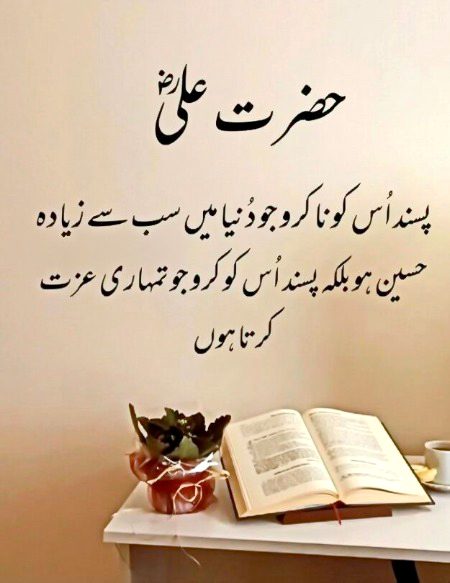 حضرت علیؓ
پسند اُس کو نا کرو جو دُنیا میں سب سے زیادہ
حسین ہو بلکہ پسند اُس کو کرو جو تمہاری عزت
کرتا ہوں